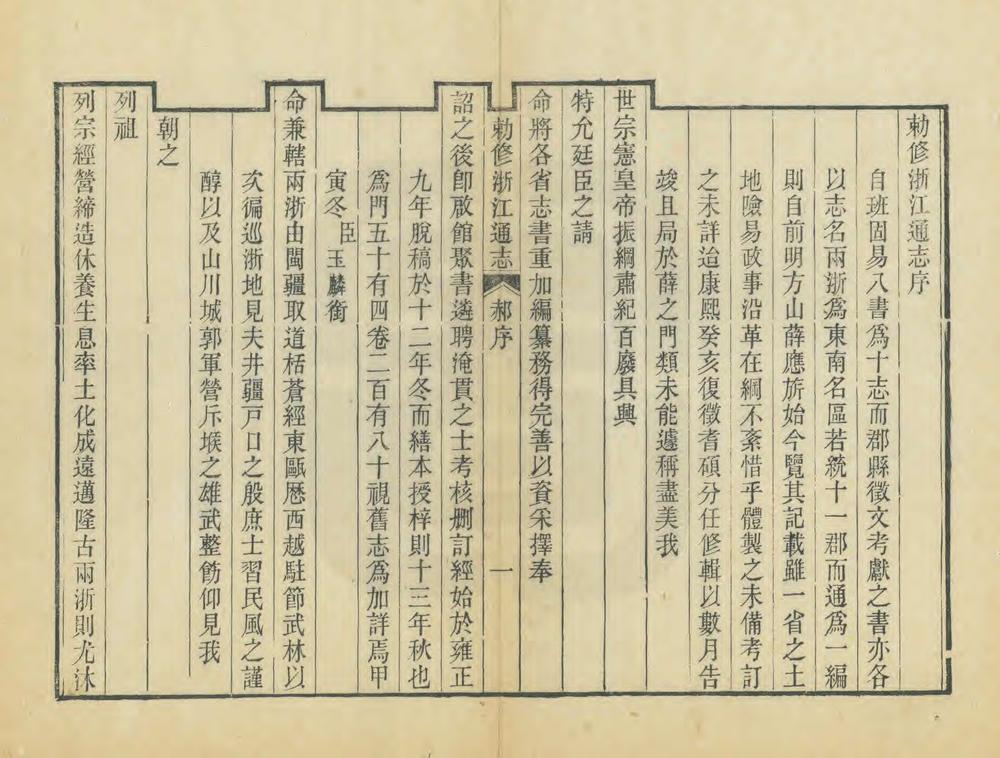 勅修浙江通志序
自班固易八書爲十志而郡縣徵文考獻之書亦各
以志名兩浙爲東南名區若統十一郡而通爲一編
則自前明方山薛應旂始今覽其記載雖一省之土
地險易政事沿革在綱不紊惜乎體製之未備考訂
之未詳迨康熙癸亥復徵耆碩分任修輯以數月告
竣且局於薛之門類未能遽稱盡美我
世宗憲皇帝振綱肅紀百廢具興
特允廷臣之請
命將各省志書重加編纂務得完善以資采擇奉
勅修浙江通志 郝序 一
詔之後卽啟館聚書遴聘淹貫之士考核删訂經始於雍正
九年脫稿於十二年冬而繕本授梓則十三年秋也
爲門五十有四卷二百有八十視舊志爲加詳焉甲
寅冬臣玉麟銜
命兼轄兩浙由閩疆取道栝蒼經東甌歷西越駐節武林以
次徧巡浙地見夫井疆戸口之殷庶士習民風之謹
醇以及山川城郭軍營斥堠之雄武整飭仰見我
朝之
列祖
列宗經營締造休養生息率土化成遠邁隆古兩浙則尤沐